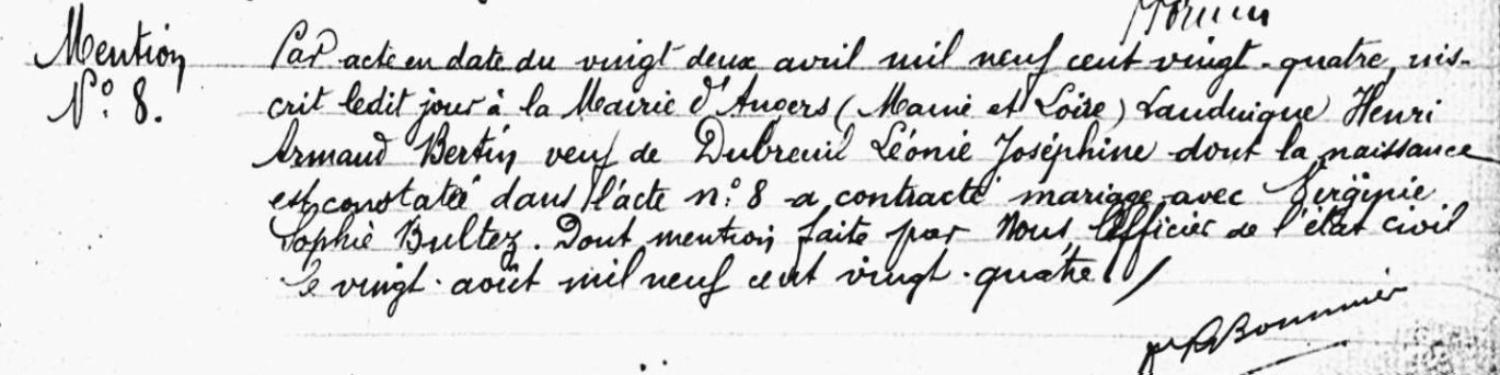 Mention
N° 8.
Par acte en date du vingt deux avril mil neuf cent vingt-quatre, ins-
crit ledit jour à la Mairie d'Angers (Maine et Loire) Henri
Armand Bertin veuf de Dubreuil Léonie Joséphine dont la naissance
est constatée dans l'acte n° 8 a contracté mariage avec Virginie
Sophie Bultez. Dont mention faite par Nous, Officier de l'état civil
le vingt-août mil neuf cent vingt-quatre. /